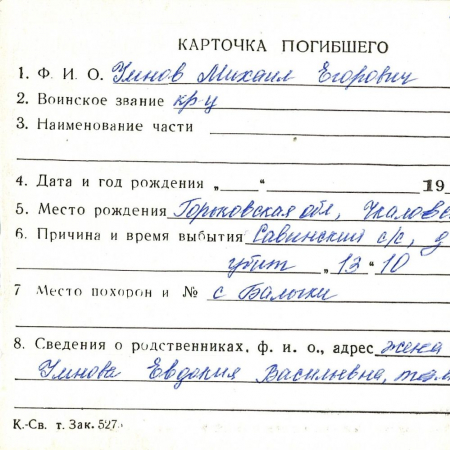 КАРТОЧКА ПОГИБШЕГО
1. Ф. И. О. Умнов Михаил Егорович
2. Воинское звание кр-ц
3. Наименование части
4. Дата и год рождения „ “ 19
5. Место рождения Горьковская обл, Чкаловс
6. Причина и время выбытия Савинский с/с, д
убит „13“ 10
7 Место похорон и № с Балыки
8. Сведения о родственниках, ф. и. о., адрес жена
Умнова Евдокия Васильевна, там
К.-Св. т. Зак. 527.